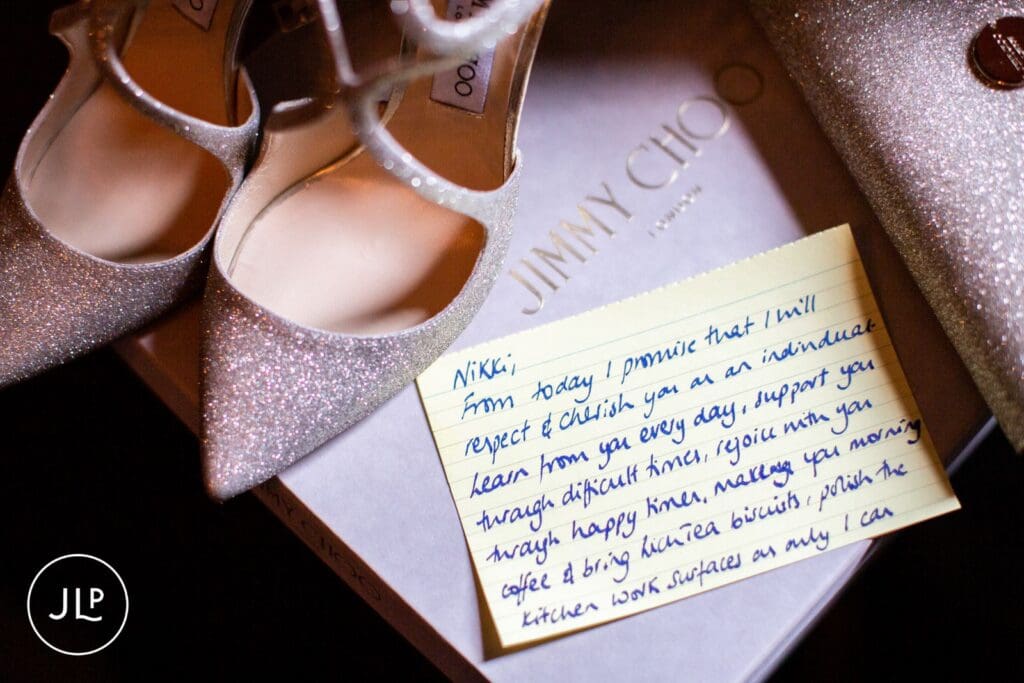 CHOO
JIMMY CHOO
LONDON
Nikki,
From today I promise that I will
respect & cherish you as an individual
Learn from you every day, support you
through difficult times, rejoice with you
through happy times, making you morning
coffee & bring RichTea biscuits, polish the
kitchen work surfaces as only I can
JIMMY CHOO
JLP